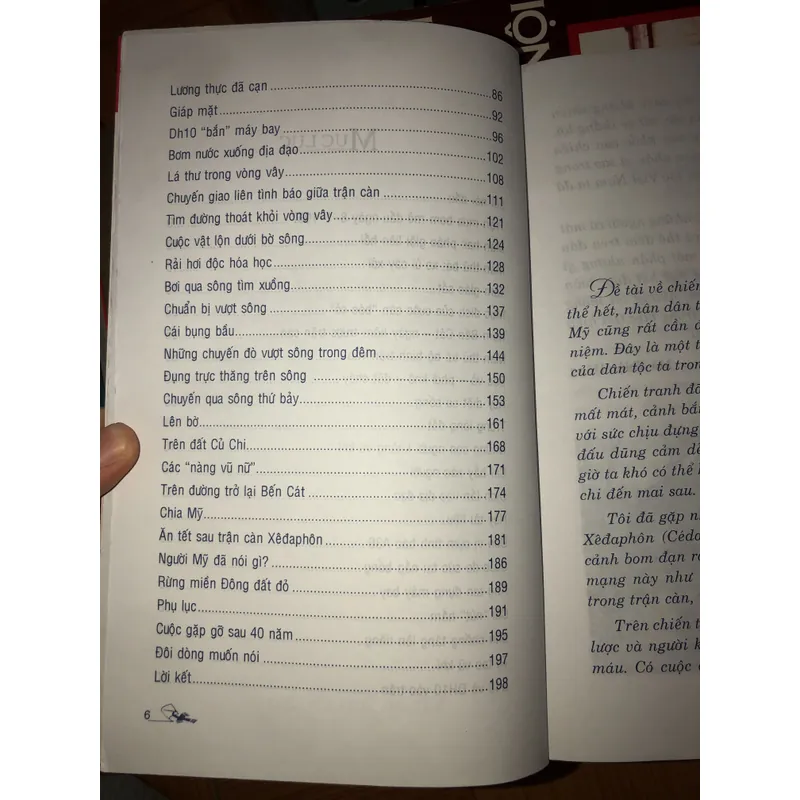 Lương thực đã cạn 86
Giáp mặt 92
Dh10 “bắn” máy bay 96
Bơm nước xuống địa đạo 102
Lá thư trong vòng vây 108
Chuyến giao liên tình báo giữa trận càn 111
Tìm đường thoát khỏi vòng vây 121
Cuộc vật lộn dưới bờ sông 124
Rải hơi độc hóa học 128
Bơi qua sông tìm xuồng 132
Chuẩn bị vượt sông 137
Cái bụng bầu 139
Những chuyến đò vượt sông trong đêm 144
Đụng trực thăng trên sông 150
Chuyến qua sông thứ bảy 153
Lên bờ 161
Trên đất Củ Chi 168
Các “nàng vũ nữ” 171
Trên đường trở lại Bến Cát 174
Chia Mỹ 177
Ăn tết sau trận càn Xêđaphôn 181
Người Mỹ đã nói gì? 186
Rừng miền Đông đất đỏ 189
Phụ lục 191
Cuộc gặp gỡ sau 40 năm 195
Đôi dòng muốn nói 197
Lời kết 198
6
Đề tài về chiến
thể hết, nhân dân t
Mỹ cũng rất cần đ
niệm. Đây là một t
của dân tộc ta tron
Chiến tranh đã
mất mát, cảnh bắn
với sức chịu đựng
đấu dũng cảm
giờ ta khó có thể
chi đến mai sau.
Tôi đã gặp
Xêđaphôn (Céda
cảnh bom đạn
mạng này như
trong trận càn,
Trên chiến t
lược và người k
máu. Có cuộc